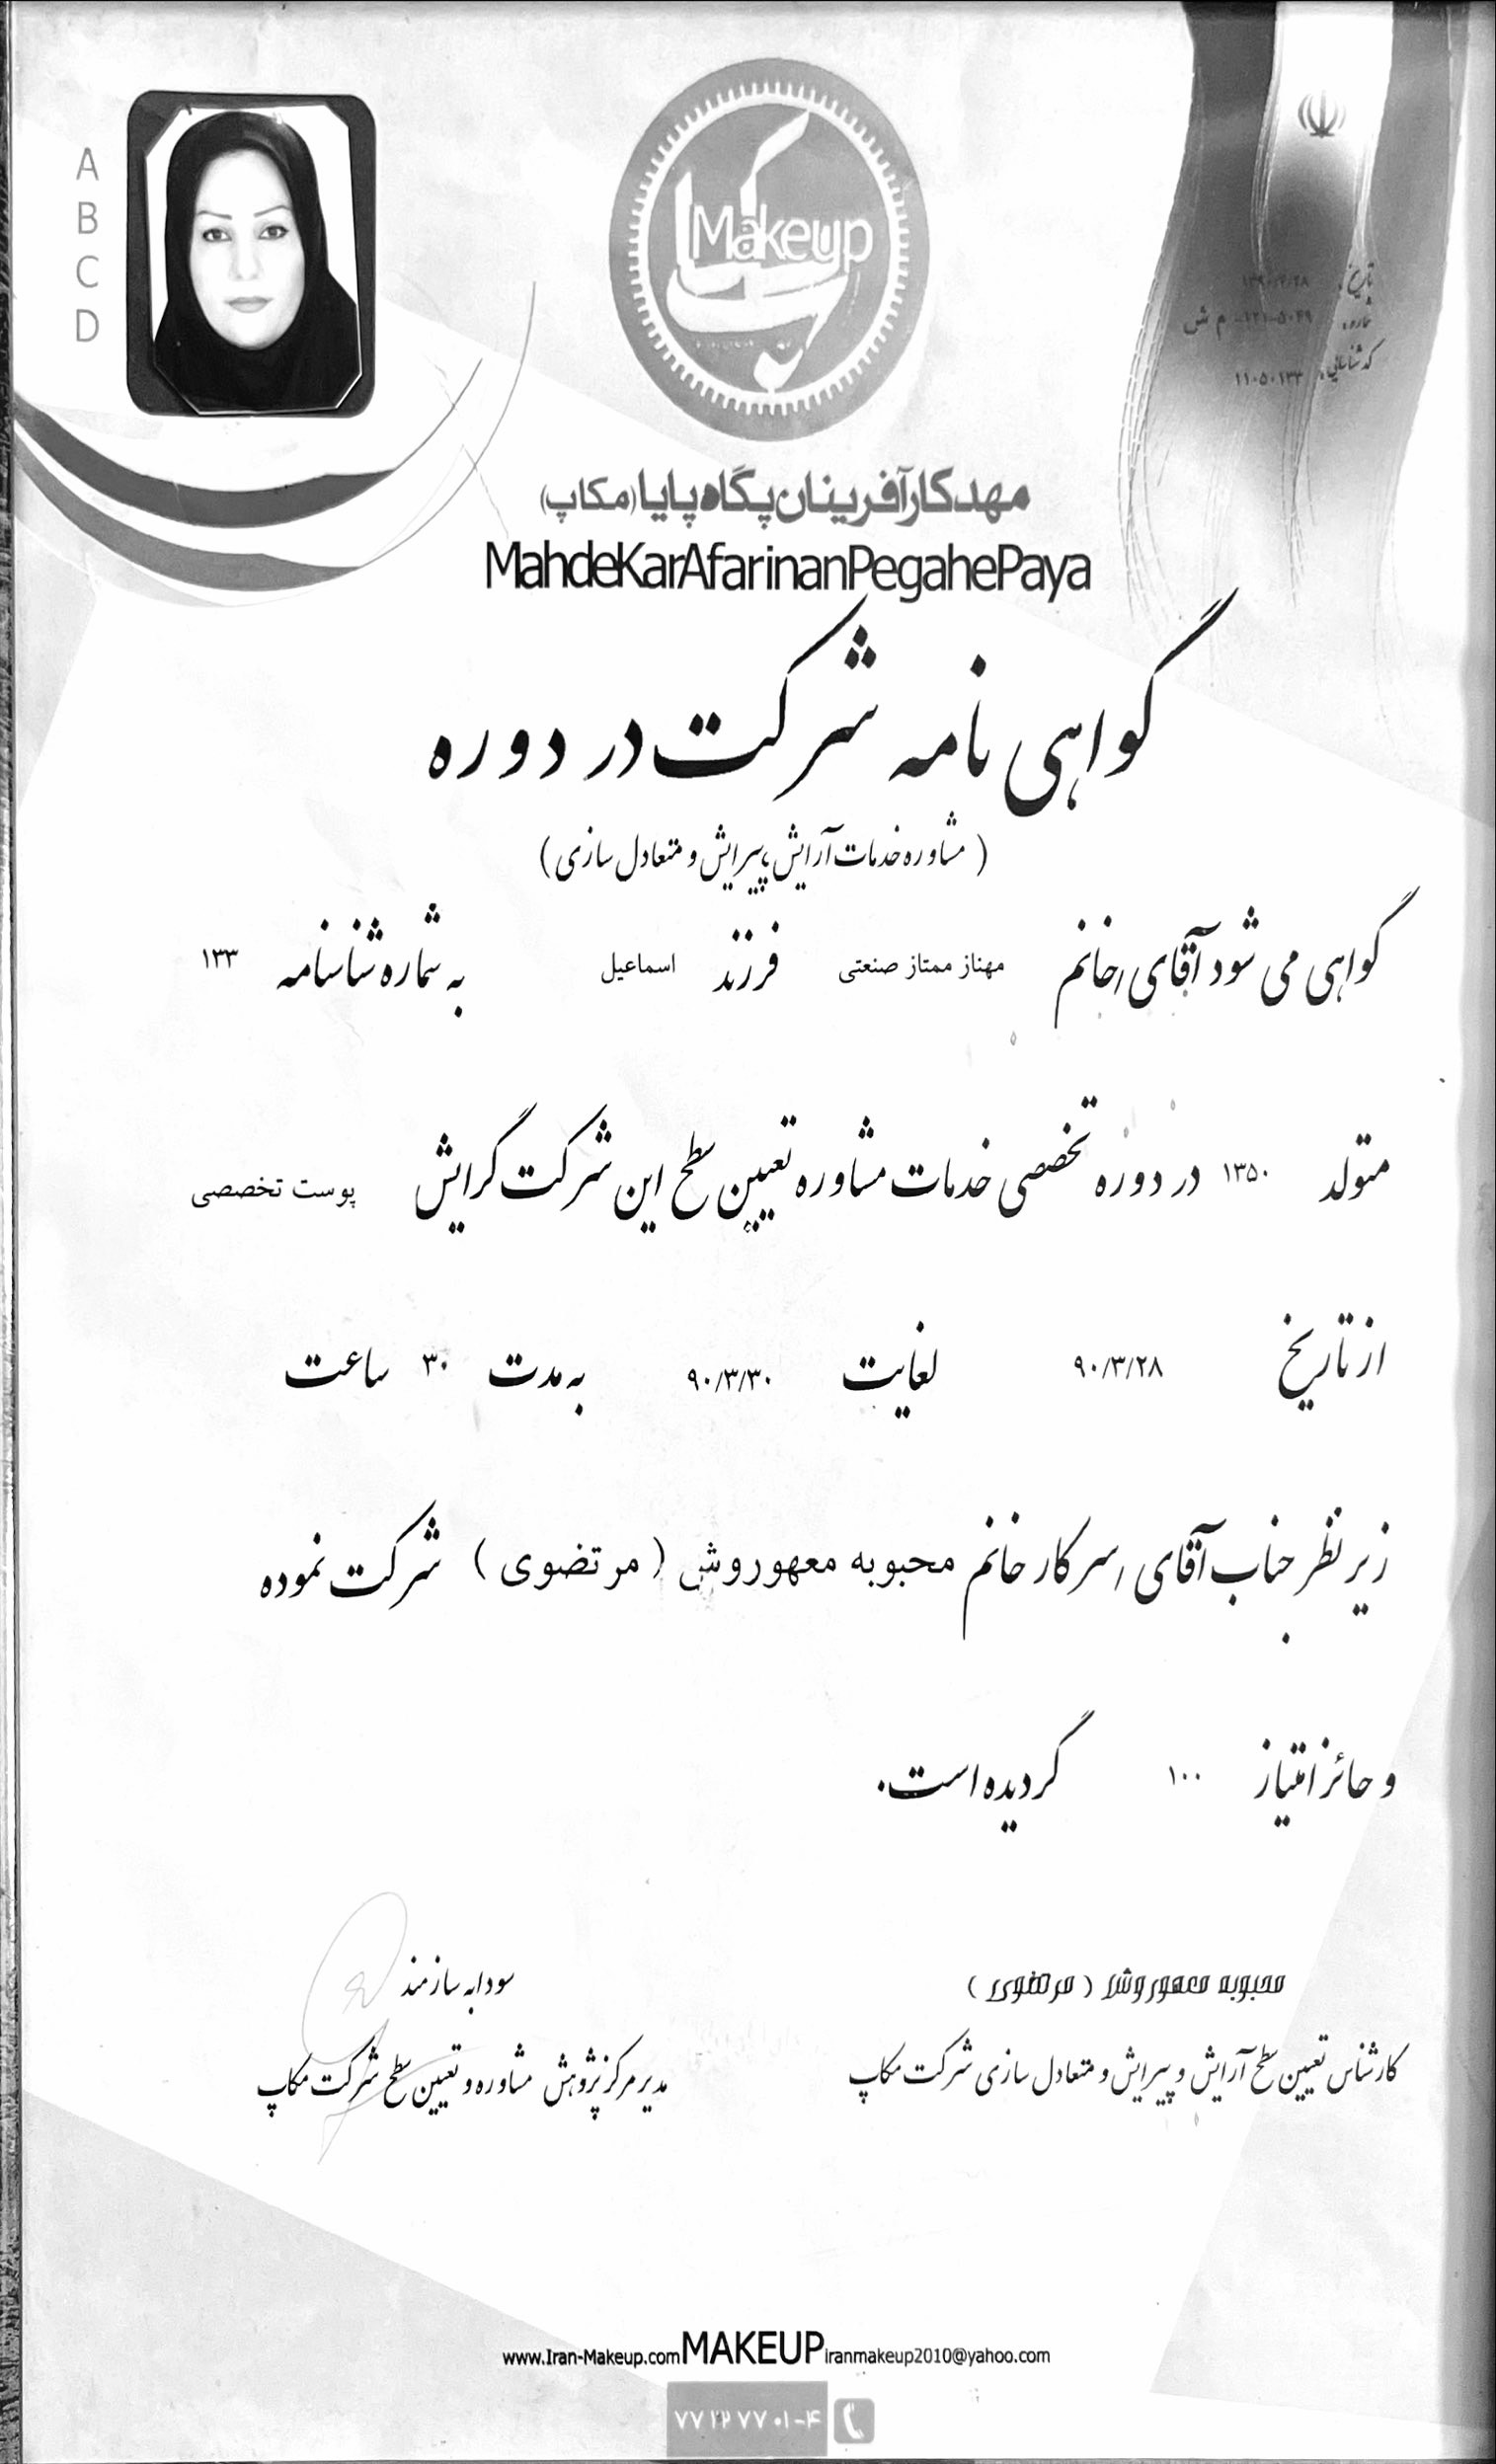 A
B
C
D
Makeup
مکاپ
تاریخ: ۱۳۹۰/۳/۲۸
شماره: ۵۰۴۹-۱۲۱- م ش
کد شناسایی: ۱۱۰۵۰۱۳۳
مهدکارآفرینان پگاه پایا (مکاپ)
MahdeKarAfarinanPegahePaya
گواهی نامه شرکت در دوره
( مشاوره خدمات آرایش، پیرایش و متعادل سازی )
گواهی می شود آقای / خانم مهناز ممتاز صنعتی فرزند اسماعیل به شماره شناسنامه ۱۳۳
متولد ۱۳۵۰ در دوره تخصصی خدمات مشاوره تعیین سطح این شرکت گرایش پوست تخصصی
از تاریخ ۹۰/۳/۲۸ لغایت ۹۰/۳/۳۰ به مدت ۳۰ ساعت
زیر نظر جناب آقای / سرکار خانم محبوبه معهوروش ( مرتضوی ) شرکت نموده
و حائز امتیاز ۱۰۰ گردیده است.
محبوبه معهوروش ( مرتضوی )
کارشناس تعیین سطح آرایش و پیرایش و متعادل سازی شرکت مکاپ
سودابه سازمند
مدیر مرکز پژوهش مشاوره و تعیین سطح شرکت مکاپ
www.Iran-Makeup.com MAKEUP iranmakeup2010@yahoo.com